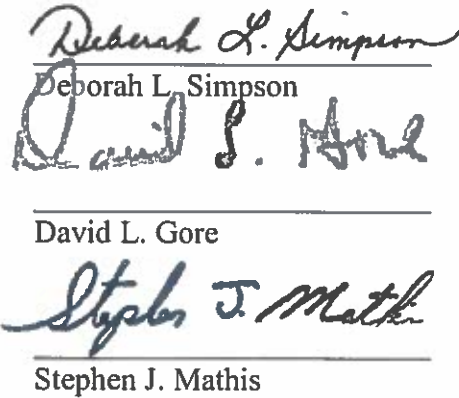 Deborah L. Simpson
Deborah L. Simpson
David L. Gore
David L. Gore
Stephen J. Mathis
Stephen J. Mathis